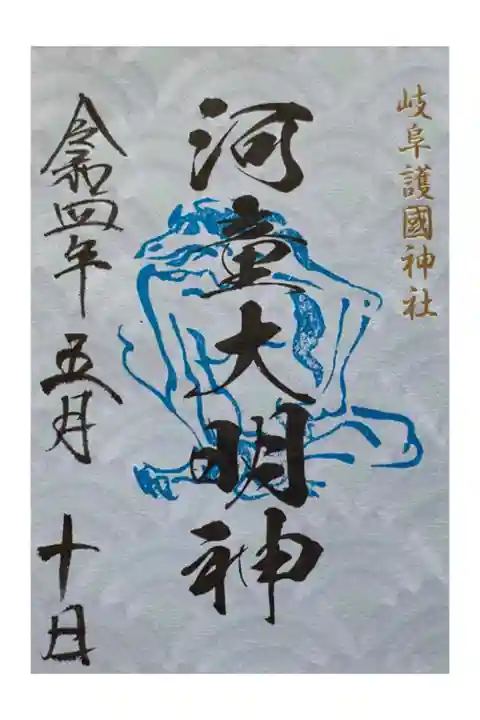 岐阜護國神社
河童大明神
令和四年 五月 十日